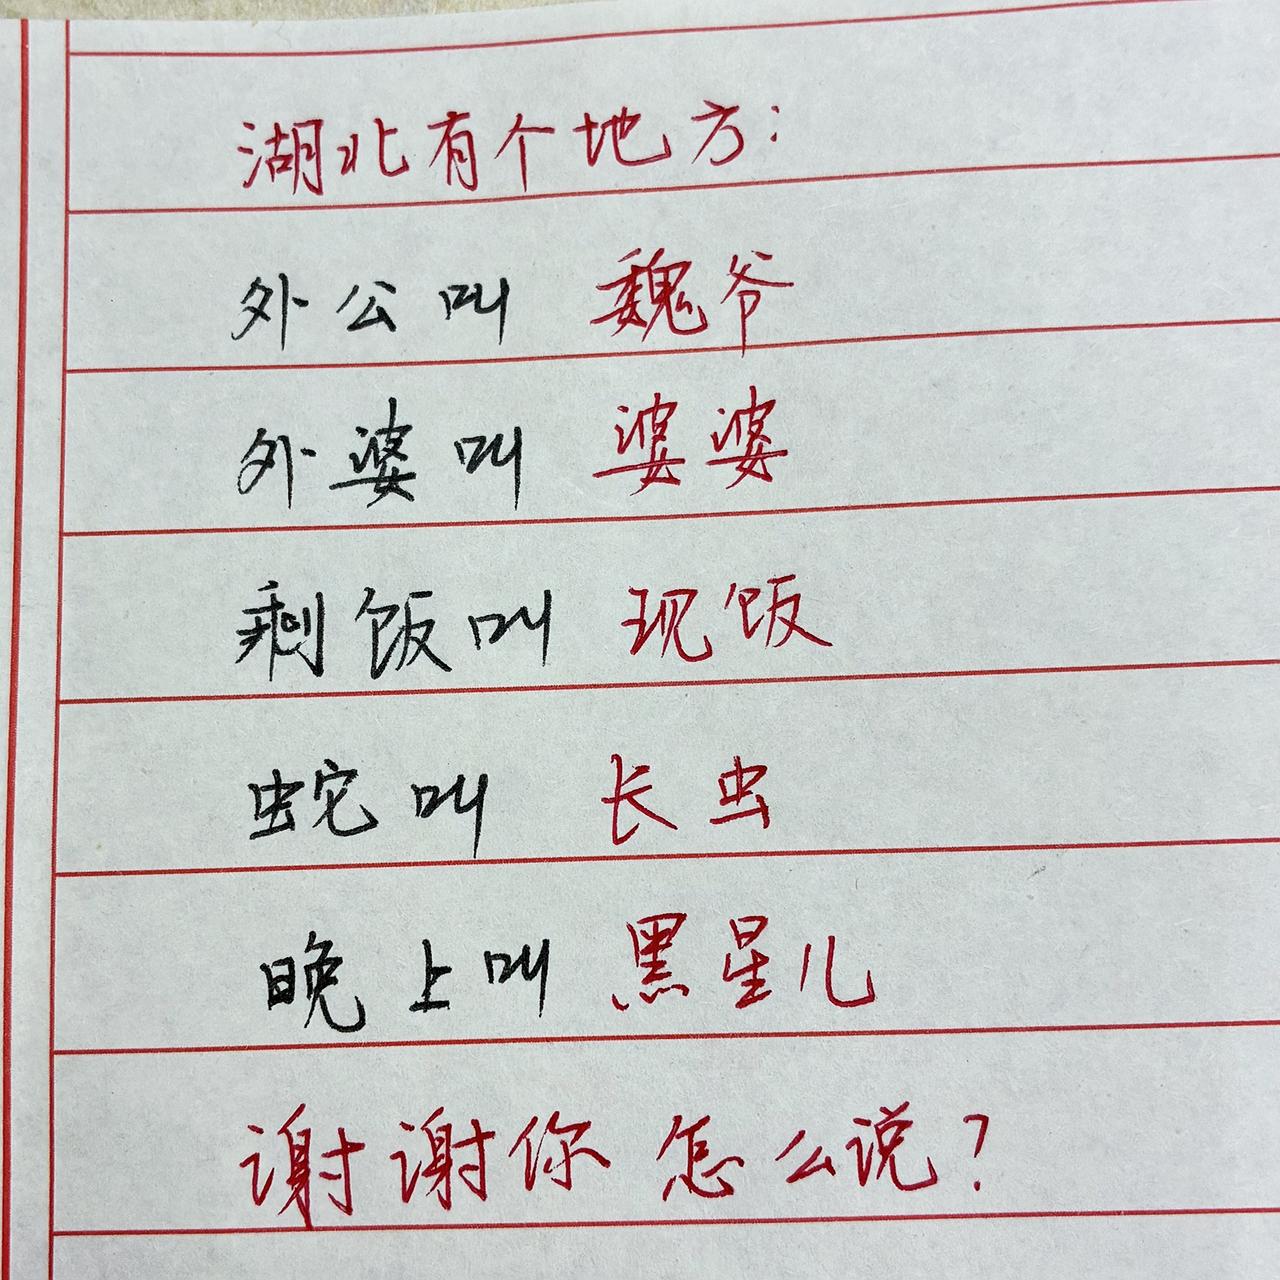 湖北有个地方:
外公叫 魏爷
外婆叫 婆婆
剩饭叫 现饭
蛇叫 长虫
晚上叫 黑星儿
谢谢你 怎么说?